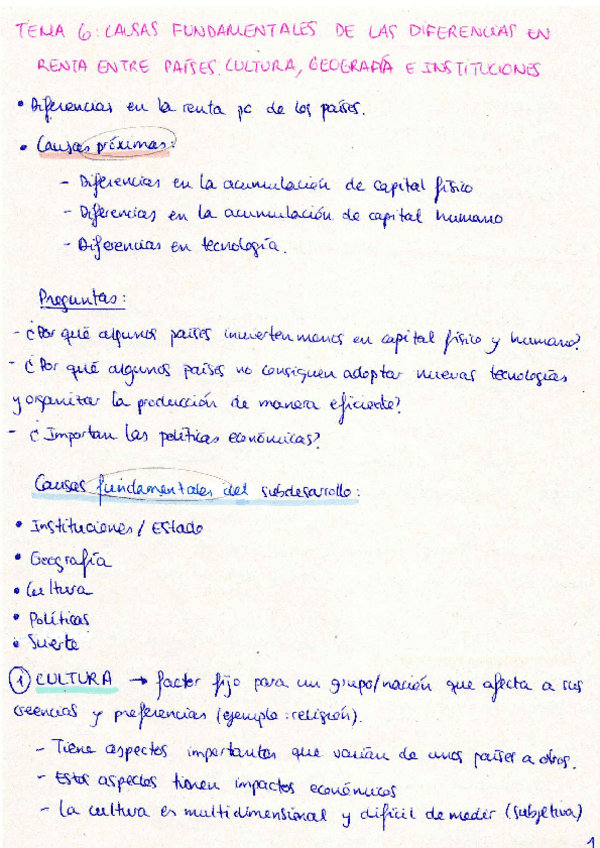 TEMA 6: CAUSAS FUNDAMENTALES DE LAS DIFERENCIAS EN
RENTA ENTRE PAÍSES. CULTURA, GEOGRAFÍA E INSTITUCIONES
• Diferencias en la renta pc de los países.
• Causas próximas:
- Diferencias en la acumulación de capital físico
- Diferencias en la acumulación de capital humano
- Diferencias en tecnología.
Preguntas:
- ¿Por qué algunos países invierten menos en capital físico y humano?
- ¿Por qué algunos países no consiguen adoptar nuevas tecnologías
y organizar la producción de manera eficiente?
- ¿Importan las políticas económicas?
Causas fundamentales del subdesarrollo:
• Instituciones / Estado
• Geografía
• Cultura
• Políticas
• Suerte
1 CULTURA → factor fijo para un grupo/nación que afecta a sus
creencias y preferencias (ejemplo: religión).
- Tiene aspectos importantes que varían de unos países a otros.
- Estos aspectos tienen impactos económicos
- La cultura es multidimensional y difícil de medir (subjetiva)
1